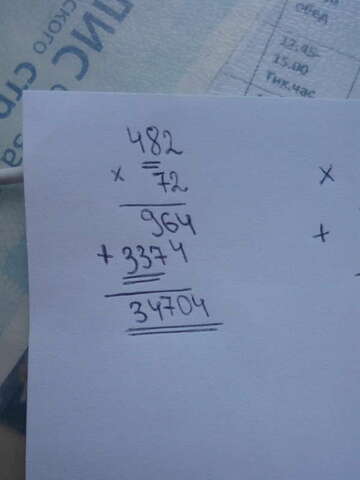 обед
12.45-
15.00
Тих.час
482
× 72
964
+ 3374
34704
×
+